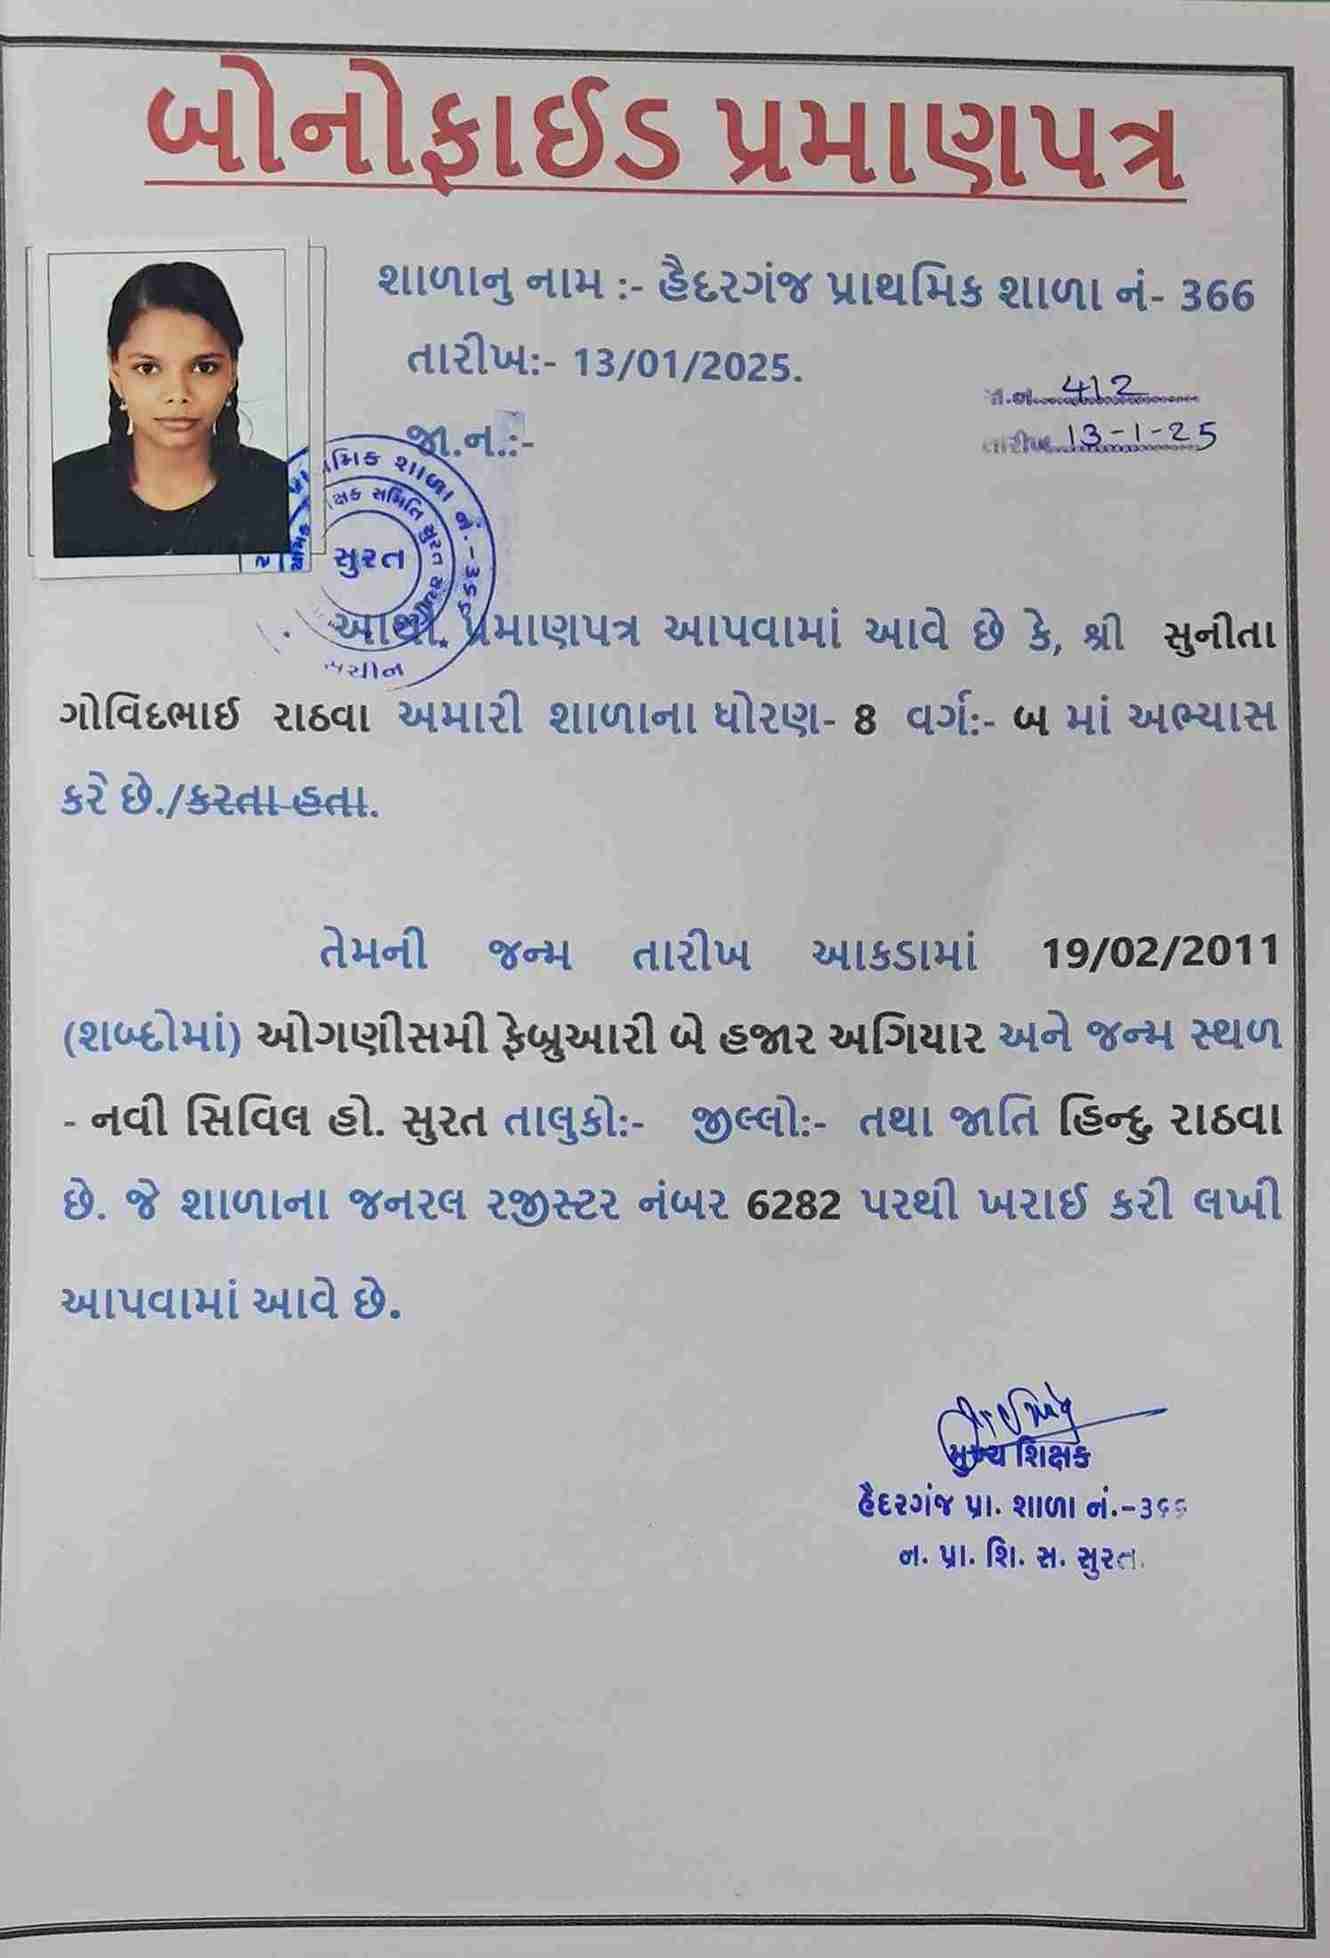 બોનોફાઈડ પ્રમાણપત્ર
શાળાનુ નામ :- હૈદરગંજ પ્રાથમિક શાળા નં- 366
તારીખ:- 13/01/2025.
જા.ન.:-
જા.નં. 412
તારીખ 13-1-25
મિક શાળા નં.-૩૬૬
ક્ષક સમિતિ સુરત
સુરત
સચીન
આથી પ્રમાણપત્ર આપવામાં આવે છે કે, શ્રી સુનીતા
ગોવિંદભાઈ રાઠવા અમારી શાળાના ધોરણ- 8 વર્ગ:- બ માં અભ્યાસ
કરે છે./કરતા હતા.
તેમની જન્મ તારીખ આકડામાં 19/02/2011
(શબ્દોમાં) ઓગણીસમી ફેબ્રુઆરી બે હજાર અગિયાર અને જન્મ સ્થળ
- નવી સિવિલ હો. સુરત તાલુકો:- જીલ્લો:- તથા જાતિ હિન્દુ રાઠવા
છે. જે શાળાના જનરલ રજીસ્ટર નંબર 6282 પરથી ખરાઈ કરી લખી
આપવામાં આવે છે.
મુખ્ય શિક્ષક
હૈદરગંજ પ્રા. શાળા નં.-૩૬૬
ન. પ્રા. શિ. સ. સુરત.